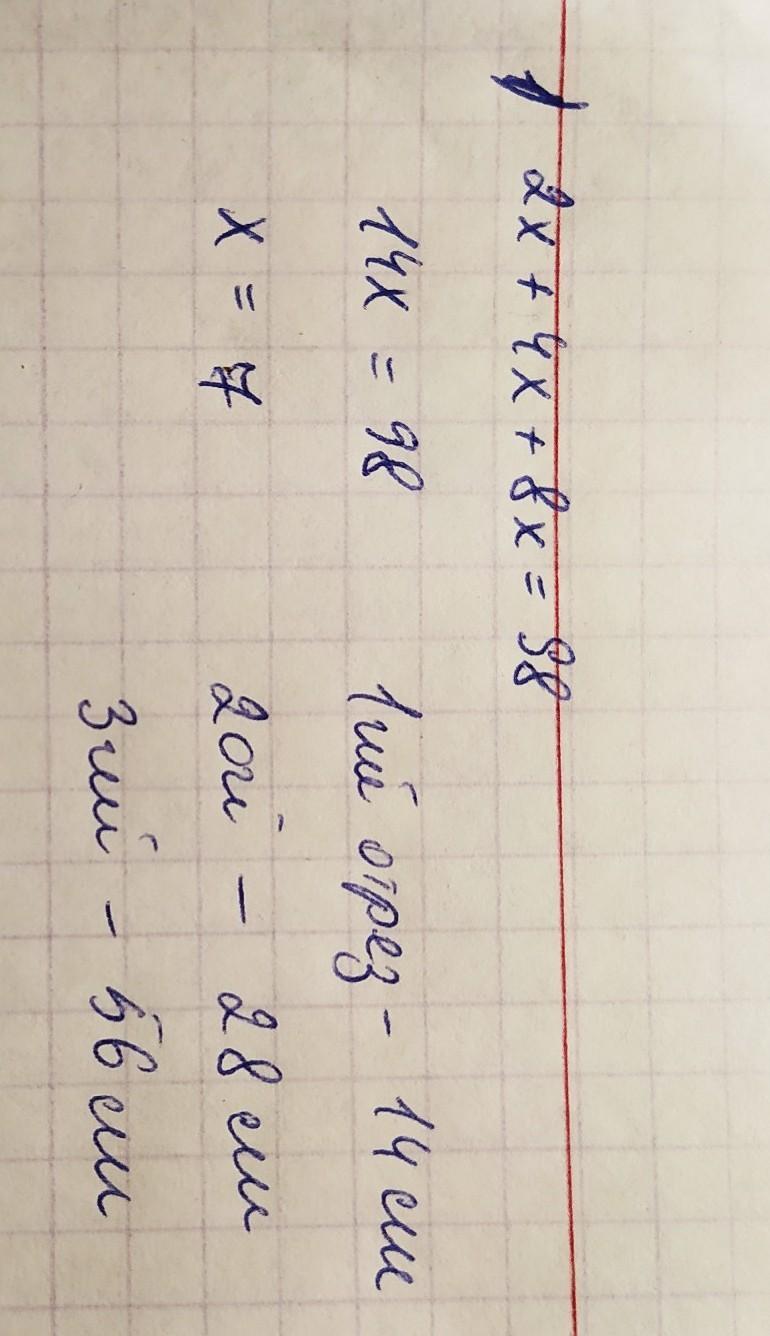 1 2x + 4x + 8x = 98
14x = 98
x = 7
1ый отрез - 14 см
2ой - 28 см
3ий - 56 см